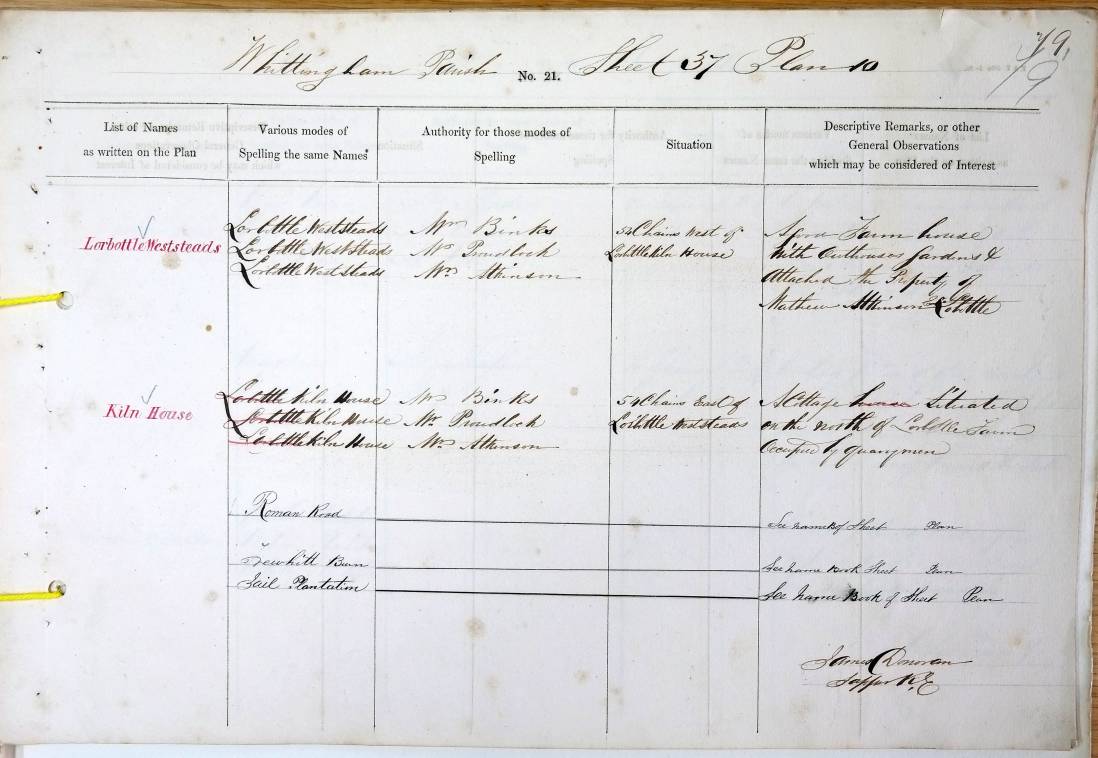 79.
9
Whittingham Parish No. 21. Sheet 37 Plan 10
List of Names
as written on the Plan
Various modes of
Spelling the same Names
Authority for those modes of
Spelling
Situation
Descriptive Remarks, or other
General Observations
which may be considered of Interest
Lorbottle Weststeads
Lorbottle Weststeads
Lorbottle Weststeads
Lorbottle Weststeads
Mr Binks
Mr Proudlock
Mr Atkinson
54 Chains West of
Lorbottle Kiln House
A Farm house
With Outhouses Gardens &
Attached the Property of
Mathew Atkinson Lorbottle
Kiln House
Lorbottle Kiln House
Lorbottle Kiln House
Lorbottle Kiln House
Mr Binks
Mr Proudlock
Mr Atkinson
54 Chains East of
Lorbottle Weststeads
A Cottage house Situated
on the North of Lorbottle Farm
Occupied by quarrymen
Roman Road
See name of Sheet Plan
Burn
See name Book Sheet Plan
Jail Plantation
See Name Book of Sheet Plan
James Donovan
Sapper R.E